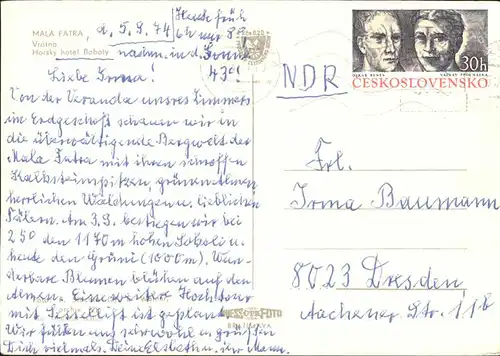 MALÁ FATRA
Vrátna
Horský hotel Boboty
d. 5.9.74 Heute früh
6h nur 8°
nachm. in d. Sonne
43°!
Liebe Irma!
Von der Veranda unsres Zimmers
im Erdgeschoß schauen wir in
die überwältigende Bergwelt der
Mala Fatra mit ihren schroffen
Kalksteinspitzen, grünen Almen,
herrlichen Waldungen u. lieblichen
Tälern. Am 3.9. bestiegen wir bei
25° den 1170 m hohen Sokoli u.
heute den Grúni (1000 m). Wun-
derbare Blumen blühen auf den
Almen. Eine weitere Hochtour
mit Sessellift ist geplant.
Wir fühlen uns sehr wohl u. grüßen
Dich vielmals. Deine Elsbeth u. ihr Mann.
PRESSFOTO
BRATISLAVA
NDR
30h
ČESKOSLOVENSKO
Frl.
Irma Baumann
8023 Dresden
Aachener Str. 11b